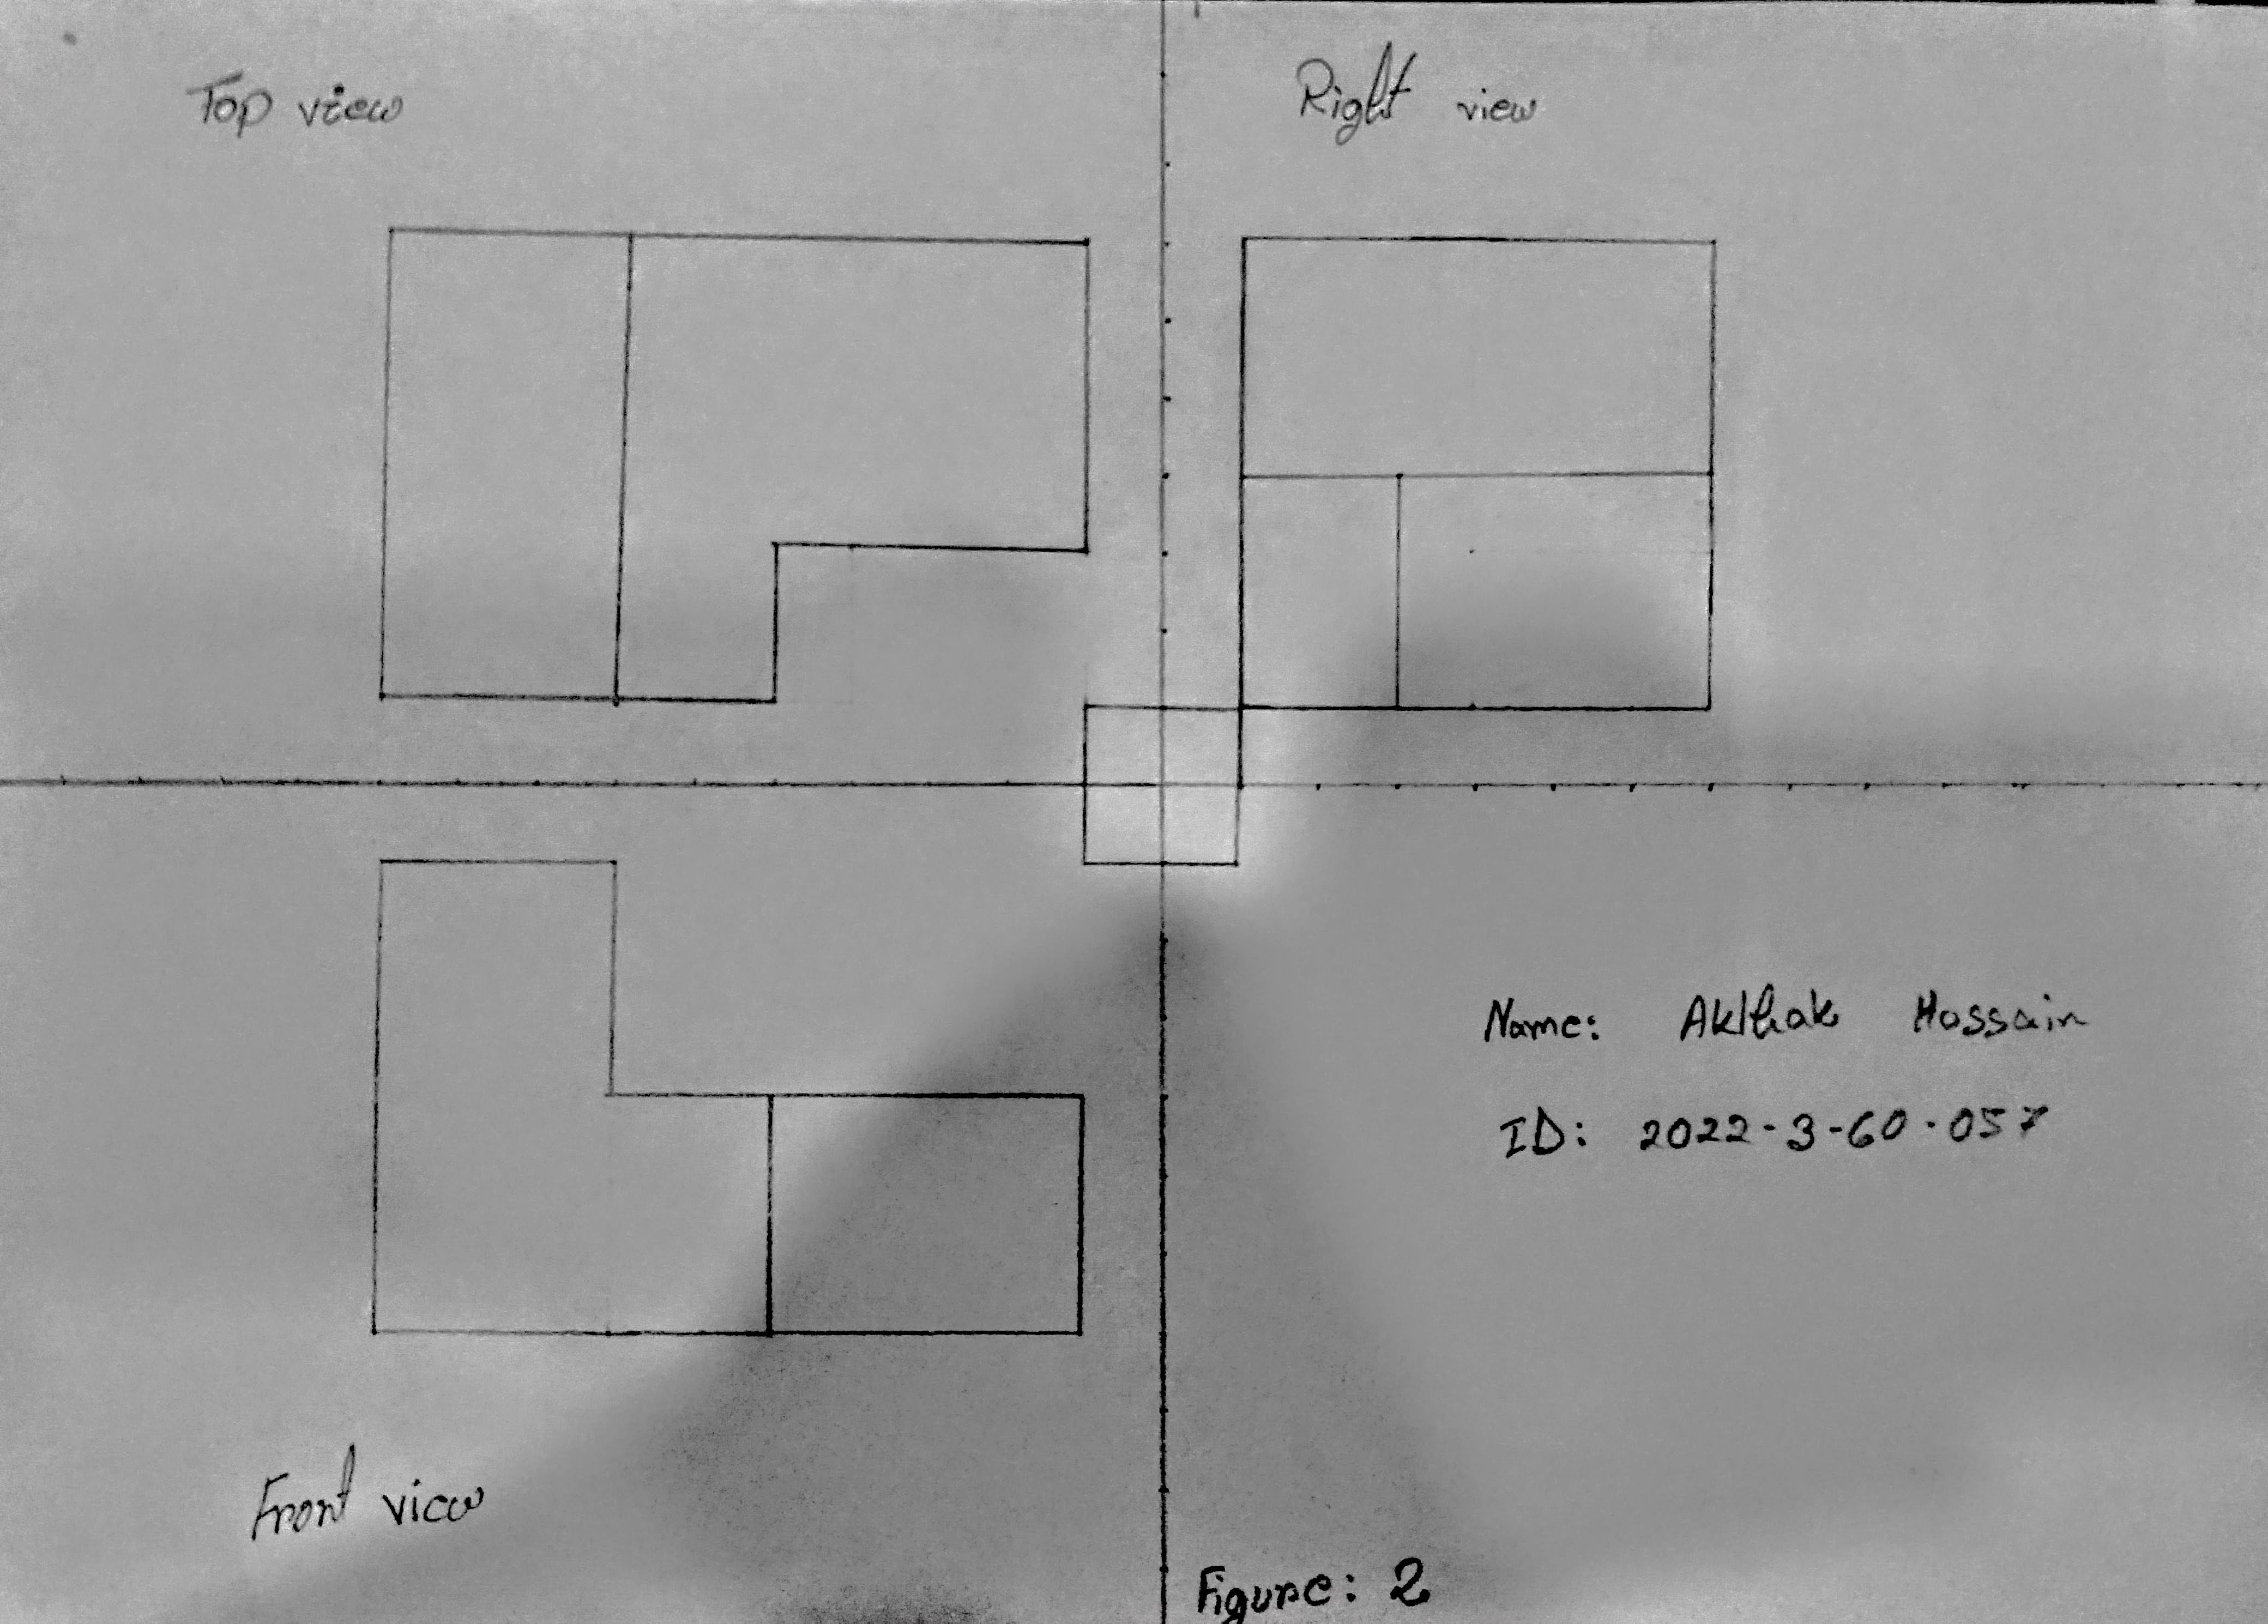 Top view
Right view
Name: Aklhak Hossain
ID: 2022-3-60-057
Front view
Figure: 2